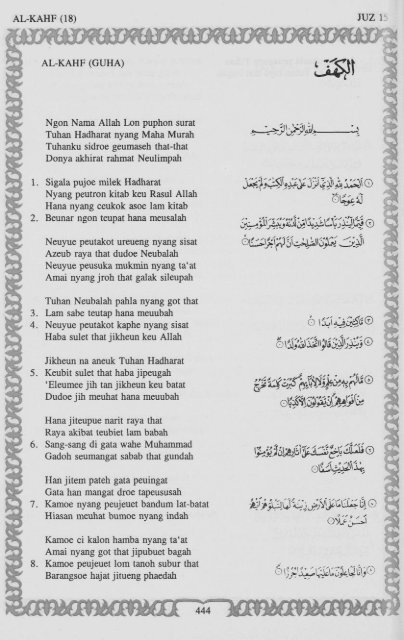 AL-KAHF (18) JUZ 15
AL-KAHF (GUHA)
الكهف
Ngon Nama Allah Lon puphon surat
Tuhan Hadharat nyang Maha Murah
Tuhanku sidroe geumaseh that-that
Donya akhirat rahmat Neulimpah
بسم الله الرحمن الرحيم
1. Sigala pujoe milek Hadharat
Nyang peutron kitab keu Rasul Allah
Hana nyang ceukok asoe lam kitab
2. Beunar ngon teupat hana meusalah
Neuyue peutakot ureueng nyang sisat
Azeub raya that dudoe Neubalah
Neuyue peusuka mukmin nyang ta'at
Amai nyang jroh that galak sileupah
Tuhan Neubalah pahla nyang got that
3. Lam sabe teutap hana meuubah
4. Neuyue peutakot kaphe nyang sisat
Haba sulet that jikheun keu Allah
Jikheun na aneuk Tuhan Hadharat
5. Keubit sulet that haba jipeugah
'Eleumee jih tan jikheun keu batat
Dudoe jih meuhat hana meuubah
Hana jiteupue narit raya that
Raya akibat teubiet lam babah
6. Sang-sang di gata wahe Muhammad
Gadoh seumangat sabab that gundah
Han jitem pateh gata peuingat
Gata han mangat droe tapeususah
7. Kamoe nyang peujeuet bandum lat-batat
Hiasan meuhat bumoe nyang indah
Kamoe ci kalon hamba nyang ta'at
Amai nyang got that jipubuet bagah
8. Kamoe peujeuet lom tanoh subur that
Barangsoe hajat jitueng phaedah
الحمد لله الذي أنزل على عبده الكتب ولم يجعل
له عوجا
قيما لينذر بأسا شديدا من لدنه ويبشر المؤمنين
الذين يعملون الصلحت أن لهم أجرا حسنا
ماكثين فيه أبدا
وينذر الذين قالوا اتخذ الله ولدا
ما لهم به من علم ولا لآبائهم كبرت كلمة تخرج
من أفواههم إن يقولون إلا كذبا
فلعلك باخع نفسك على آثارهم إن لم يؤمنوا
بهذا الحديث أسفا
إنا جعلنا ما على الأرض زينة لها لنبلوهم أيهم
أحسن عملا
وإنا لجاعلون ما عليها صعيدا جرزا
444